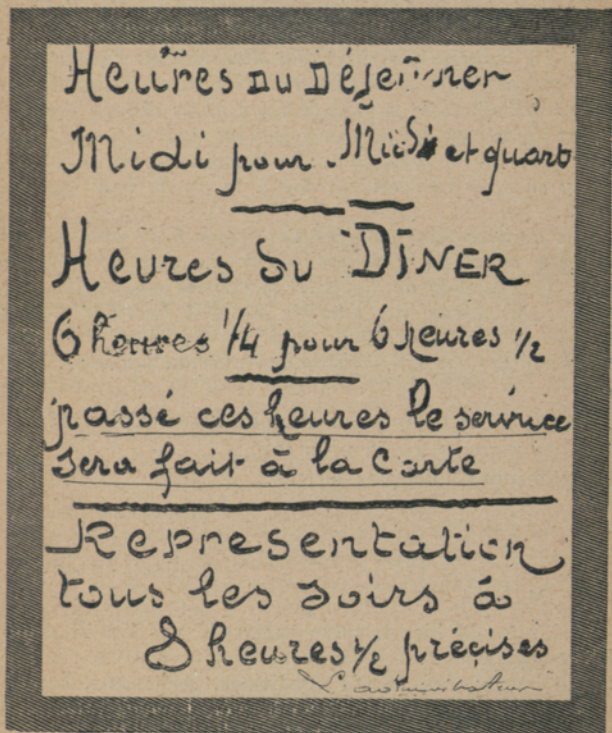 Heures du Déjeuner
Midi pour Midi et quart
Heures du DÎNER
6 heures 1/4 pour 6 heures 1/2
passé ces heures le service
sera fait à la Carte
Representation
tous les soirs à
8 heures 1/2 précises
L'administateur